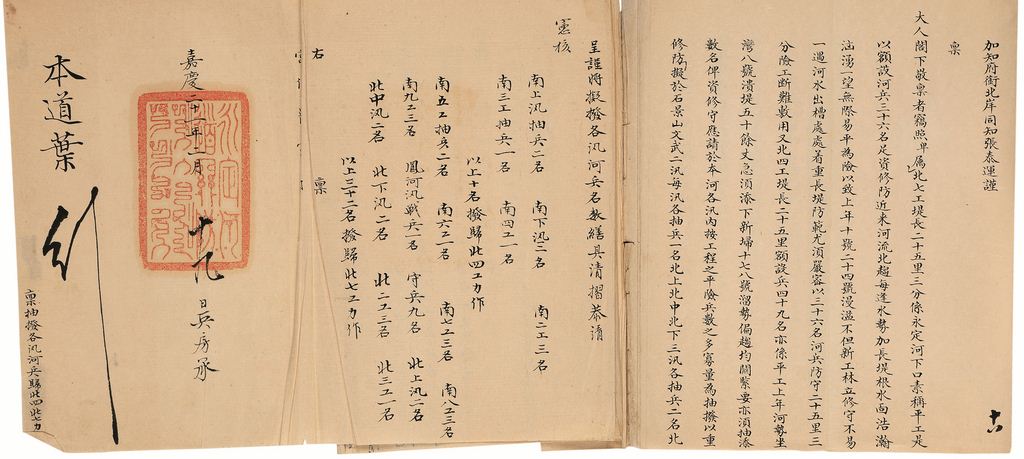 十八
加知府銜北岸同知張泰運謹
稟
大人閣下敬稟者竊照卑属北七工堤長二十五里三分係永定河下口素稱平工是
以額設河兵三十六名足資修防近來河流北趨每逢水勢加長堤根水面浩瀚
洶湧一望無際易平為險以致上年十號二十四號漫溢不但新工林立修守不易
一遇河水出槽處處着重長堤防範尤須嚴密以三十六名河兵防守二十五里三
分險工斷難敷用又北四工堤長二十五里額設兵四十九名亦係平工上年河勢坐
灣八號潰堤五十餘丈急須添下新埽十七八號溜勢偏趨均關緊要亦須抽添
數名俾資修守應請於本河各汛內按工程之平險兵數之多寡量為抽撥以重
修防擬於石景山文武二汛每汛各抽兵一名北上北中北下三汛各抽兵二名北
呈謹將擬撥各汛河兵名數繕具清摺恭請
憲核
南上汛抽兵二名 南下汛三名 南二工三名
南三工抽兵一名 南四工一名
以上十名撥歸北四工力作
南五工抽兵二名 南六工一名 南七工三名 南八工三名
南九工三名 鳳河汛戰兵一名 守兵九名 北上汛二名
北中汛二名 北下汛二名 北二工三名 北三工一名
以上三十二名撥歸北七工力作
右
稟
嘉慶二十一年一月十九日兵房承
本道葉
稟抽撥各汛河兵歸北四北七力